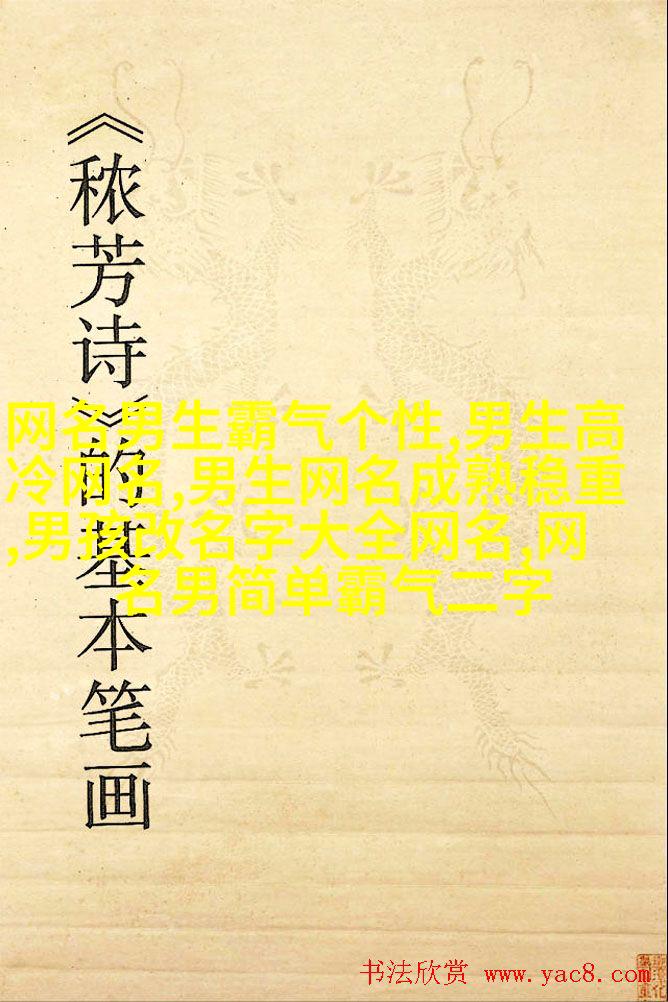 《秾芳诗》的基本笔画
网名男生霸气个性,男生高
冷网名,男生网名成熟稳重
,男孩改名字大全网名,网
名男简单霸气二字
书法欣赏 www.yac8.com